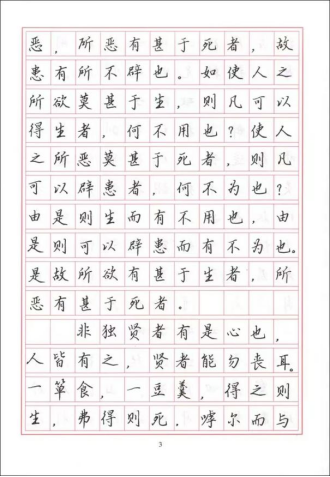 恶，所恶有甚于死者，故
患有所不辟也。如使人之
所欲莫甚于生，则凡可以
得生者，何不用也？使人
之所恶莫甚于死者，则凡
可以辟患者，何不为也？
由是则生而有不用也，由
是则可以辟患而有不为也。
是故所欲有甚于生者，所
恶有甚于死者。
非独贤者有是心也，
人皆有之，贤者能勿丧耳。
一箪食，一豆羹，得之则
生，弗得则死。呼尔而与
3